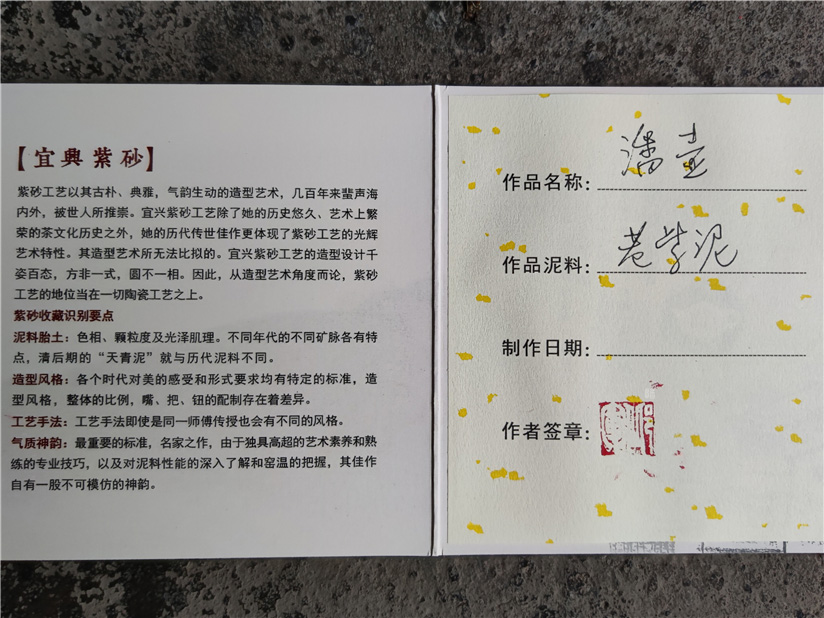 【宜興紫砂】
紫砂工艺以其古朴、典雅，气韵生动的造型艺术，几百年来蜚声海
内外，被世人所推崇。宜兴紫砂工艺除了她的历史悠久、艺术上繁
荣的茶文化历史之外，她的历代传世佳作更体现了紫砂工艺的光辉
艺术特性。其造型艺术所无法比拟的。宜兴紫砂工艺的造型设计千
姿百态，方非一式，圆不一相。因此，从造型艺术角度而论，紫砂
工艺的地位当在一切陶瓷工艺之上。
紫砂收藏识别要点
泥料胎土：色相、颗粒度及光泽肌理。不同年代的不同矿脉各有特
点，清后期的“天青泥”就与历代泥料不同。
造型风格：各个时代对美的感受和形式要求均有特定的标准，造
型风格，整体的比例，嘴、把、钮的配制存在着差异。
工艺手法：工艺手法即使是同一师傅传授也会有不同的风格。
气质神韵：最重要的标准，名家之作，由于独具高超的艺术素养和熟
练的专业技巧，以及对泥料性能的深入了解和窑温的把握，其佳作
自有一般不可模仿的神韵。
作品名称：潘壶
作品泥料：老紫泥
制作日期：
作者签章：